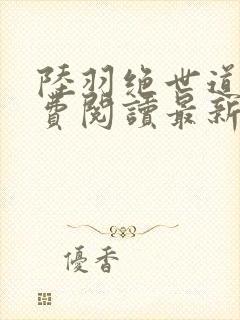 陸羽絶世道
費閱讀最新
優香